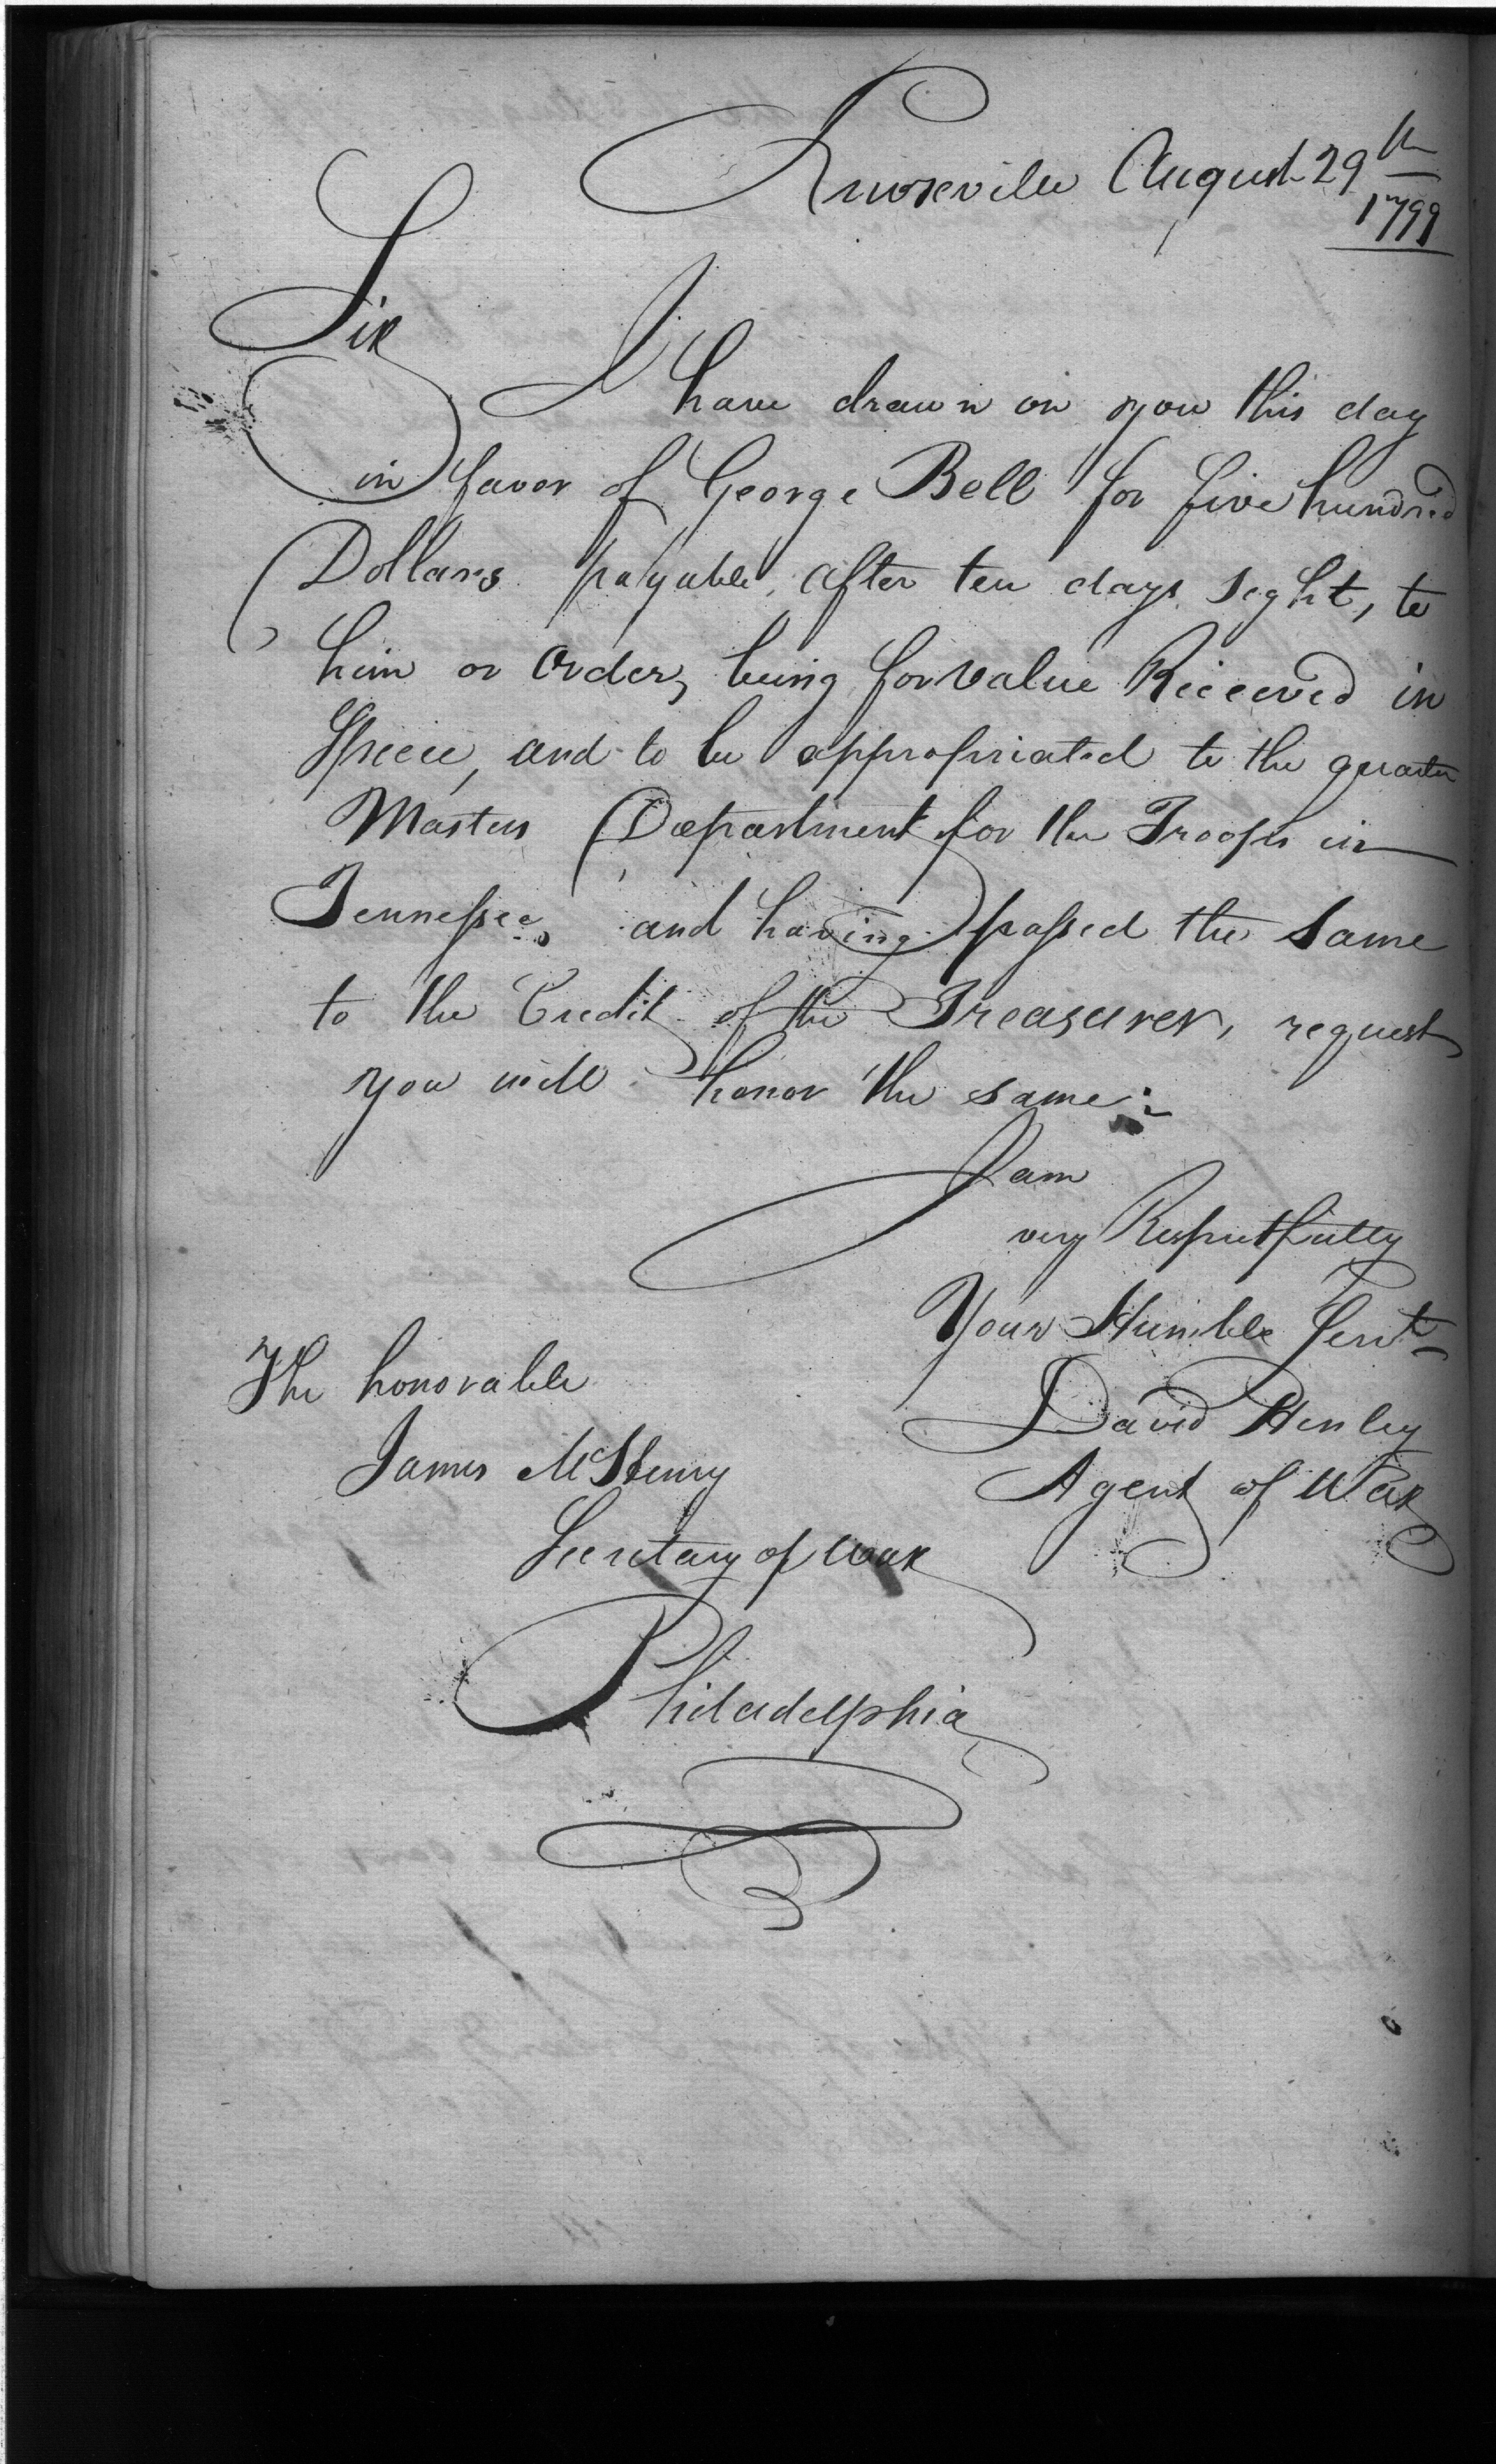 Knoxville August 29th
1799
Sir
I have drawn on you this day
in favor of George Bell for five hundred
Dollars payable, after ten days sight, to
him or order, being for value Received in
Specie, and to be appropriated to the quarter
Masters Department for the Troops in
Tennessee, and having passed the same
to the Credit of the Treasurer, request
you will honor the same:
I am
very Respectfully
Your Humble Servt
David Henley
Agent of War
The honorable
James McHenry
Secretary of War
Philadelphia